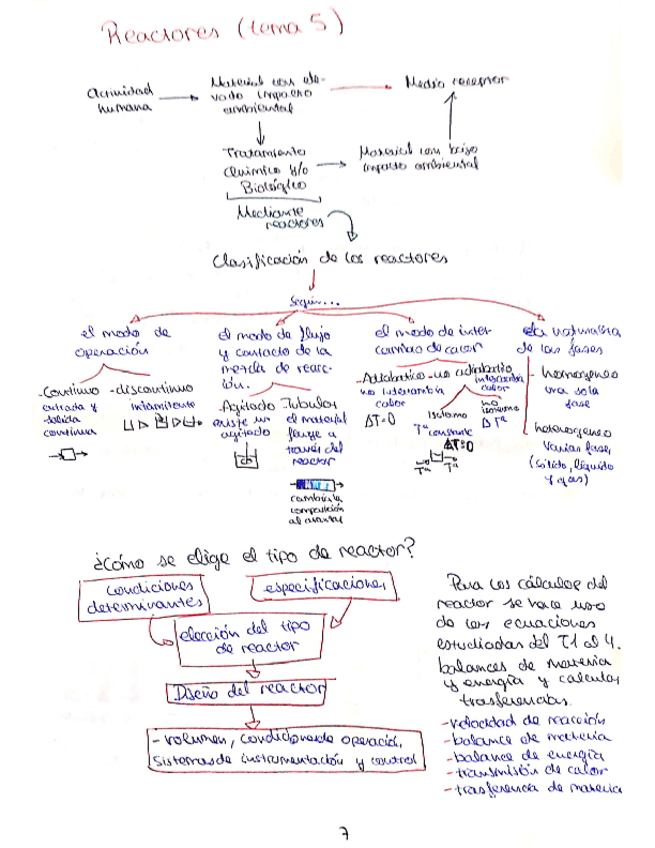 Reactores (tema 5)
Actividad
humana
Material con ele-
vado impacto
ambiental
Medio receptor
Tratamiento
Químico y/o
Biológico
Material con bajo
impacto ambiental
Mediante
reactores
Clasificación de los reactores
Según...
el modo de
operación
-Continuo
entrada y
salida
continua
-discontinuo
intermitente
el modo de flujo
y contacto de la
mezcla de reac-
ción.
-Agitado
existe un
agitado
Tubular
el material
fluye a
través del
reactor
cambia la
composición
al avanzar
el modo de inter
cambio de calor
-Adiabatico
no intercambia
calor
ΔT=0
-no adiabatico
intercambia
calor
Isotermo
Tª constante
ΔT=0
Tª Tª
no
isotermo
Δ Tª
la naturaleza
de las fases
- homogeneo
una sola
fase
- heterogeneo
varias fases
(sólido, líquido
y gas)
¿Cómo se elige el tipo de reactor?
condiciones
determinantes
especificaciones
elección del tipo
de reactor
Diseño del reactor
- volumen, condiciones de operación,
sistemas de instrumentación y control
Para los cálculos del
reactor se hace uso
de las ecuaciones
estudiadas del T1 al 4.
balances de materia
y energía y calculos
trasferencias.
-velocidad de reacción
-balance de materia
-balance de energía
-transmisión de calor
-trasferencia de materia
7